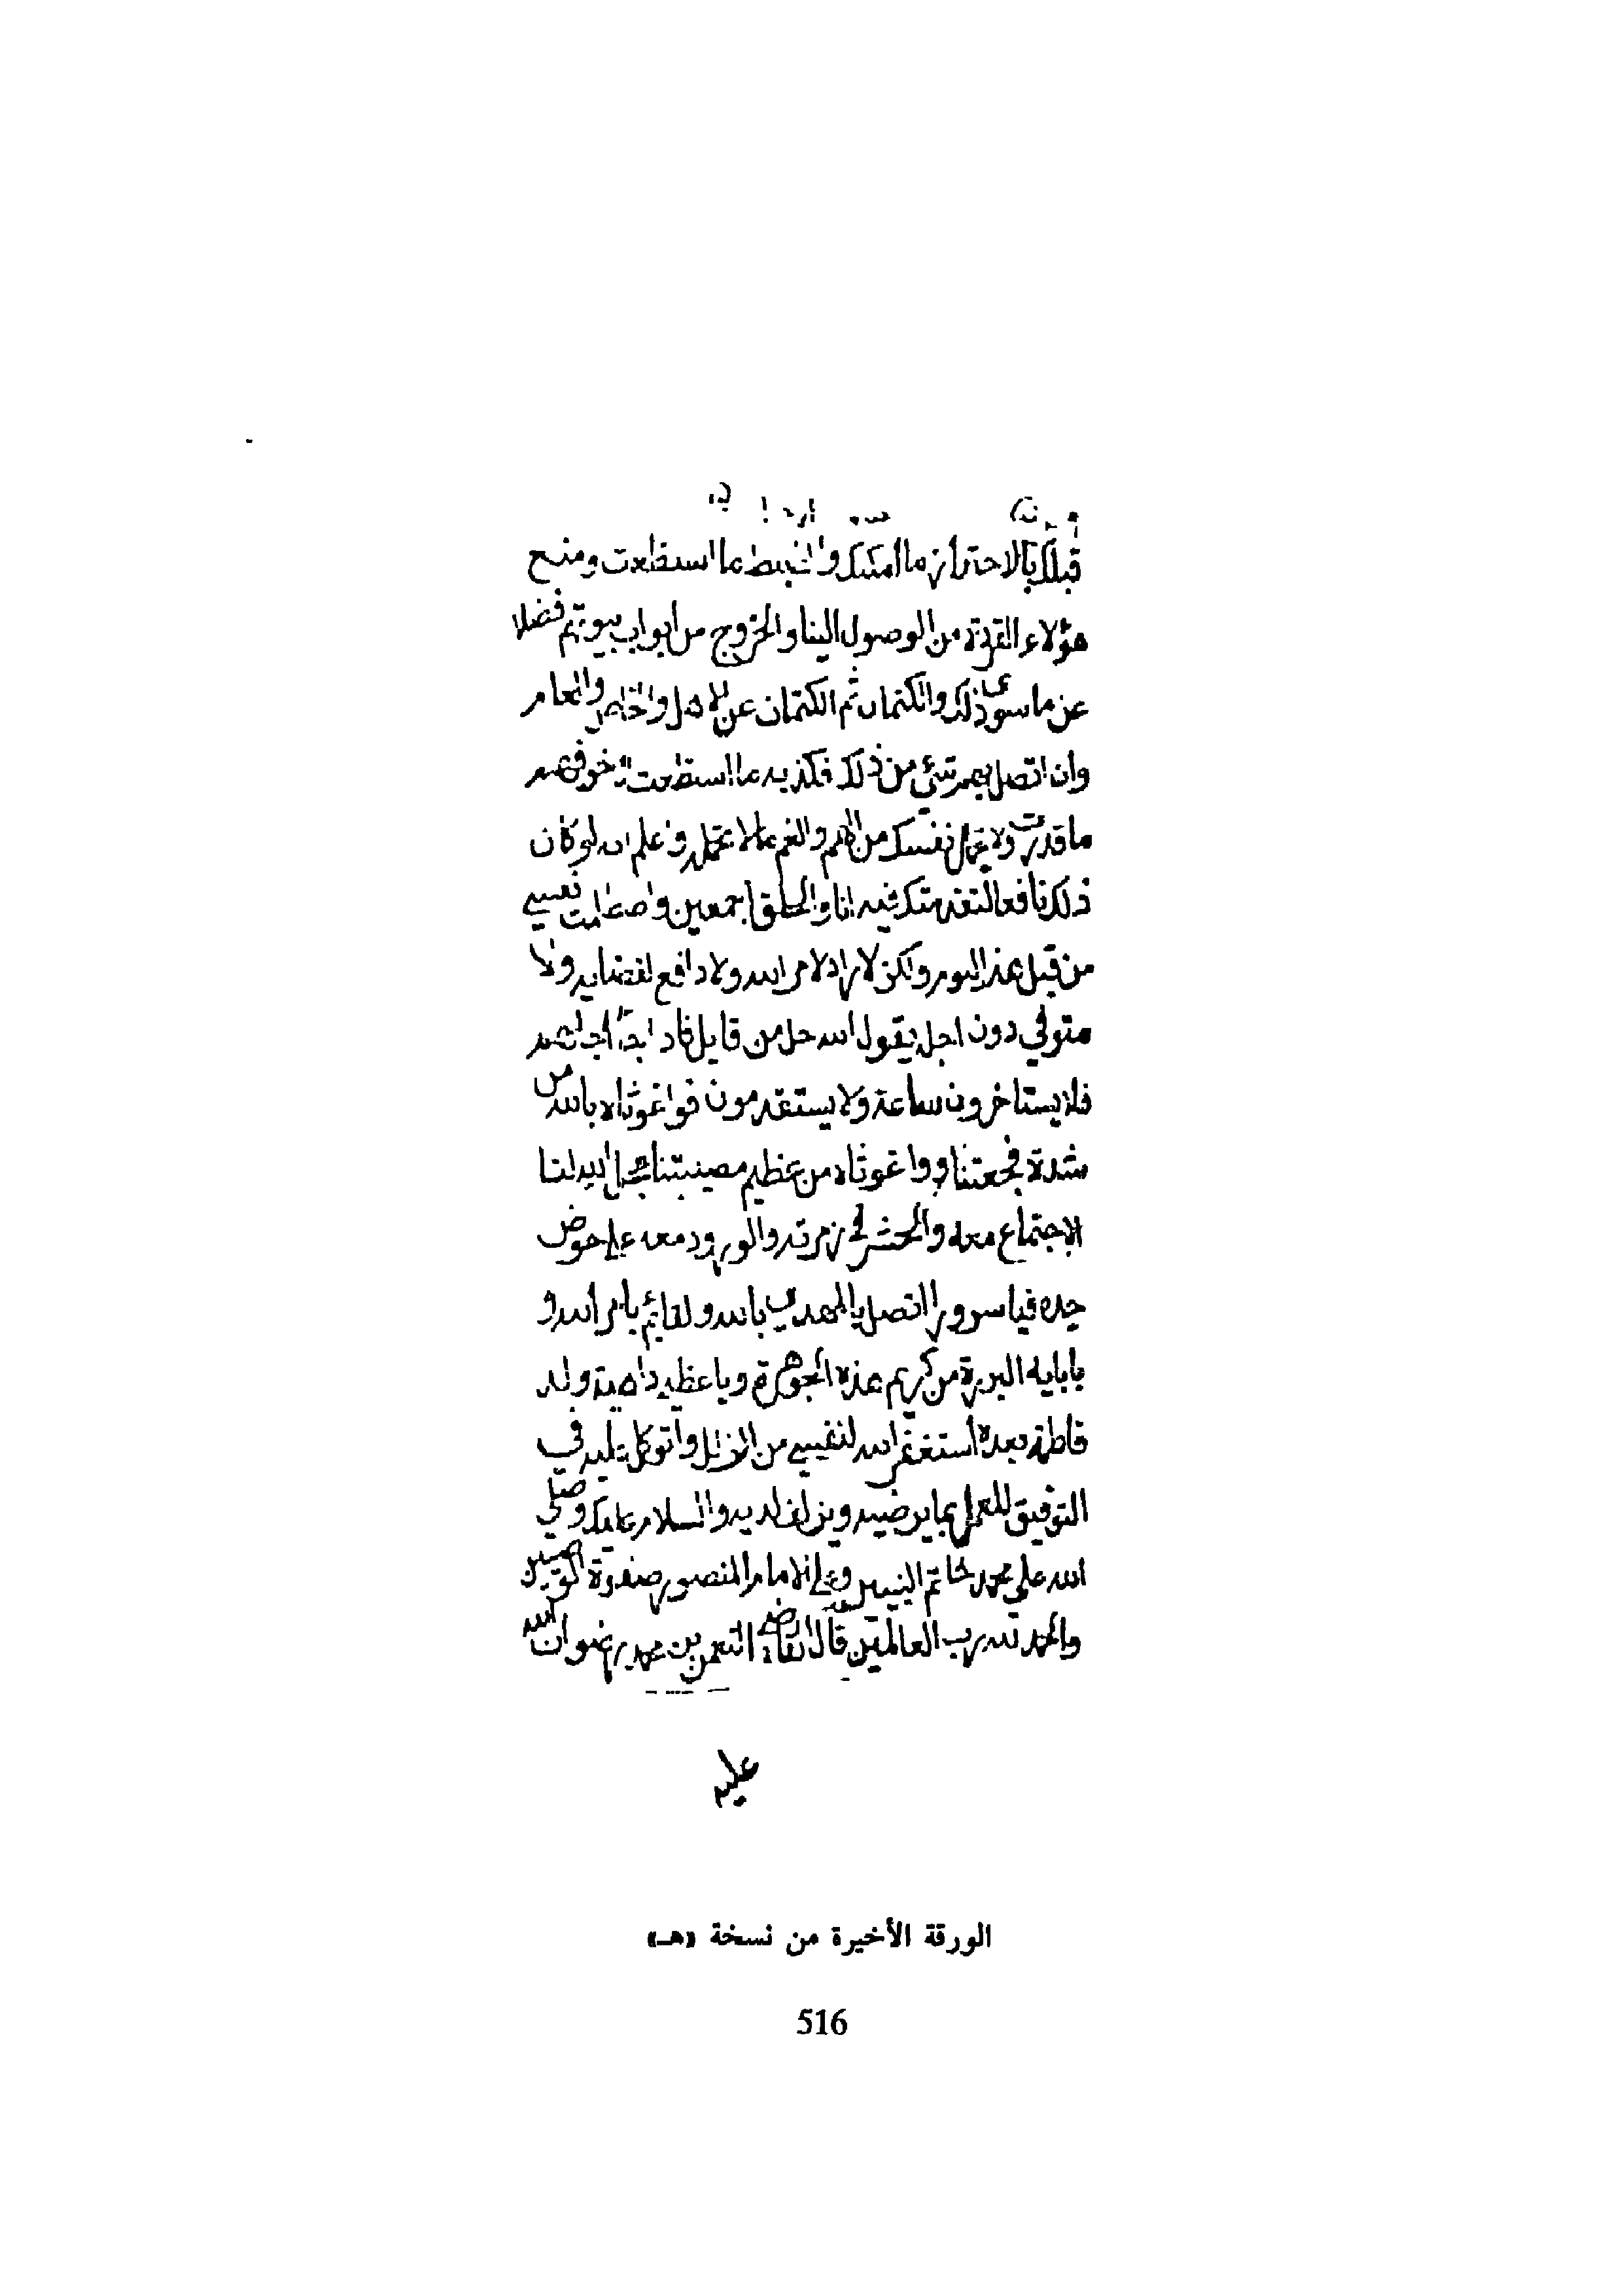 قبلك بالاحتراز ما امكنك واضبط ما استطعت ومنع
هؤلاء القردة من الوصول الينا والخروج من ابواب بيوتهم فضلا
عن ما سوى ذلك والكتمان ثم الكتمان عن الاهل والخاص والعام
وان اتصل بهم شئ من ذلك فكذبه ما استطعت وخوفهم
ما قدرت ولا تحمل نفسك من الهم والغم ما لا تحمله واعلم انه لو كان
ذلك نافعا لتقدمتك فيه انا والخلق اجمعين نفسي
من قبل هذا اليوم ولكن لا راد لامر الله ولا دافع لقضايه ولا
متوفي دون اجل يقول الله جل من قايل فاذا جاء اجلهم
فلا يستاخرون ساعة ولا يستقدمون فواغوثاه بالله من
شدة فجعتنا وواغوثاه من عظيم مصيبتنا
الاجتماع معه والحشر في زمرته والورود معه على حوض
جده فيا سرور اتصل بالمهدي بالله والقايم بامر الله و
بابايه البررة من كريم هذه الجوهرة ويا عظيم داهية ولد
فاطمة بعده استغفر الله لنفسي من الزلل واتوكل عليه في
التوفيق للعمل بما يرضيه ويزلف لديه والسلام عليك وصلى
الله على محمد خاتم النبيين وعلى الامام المنصور صفوة
والحمد لله رب العالمين قال القاضي النعمن بن محمد رضوان الله
عليه
الورقة الأخيرة من نسخة «هـ»
516